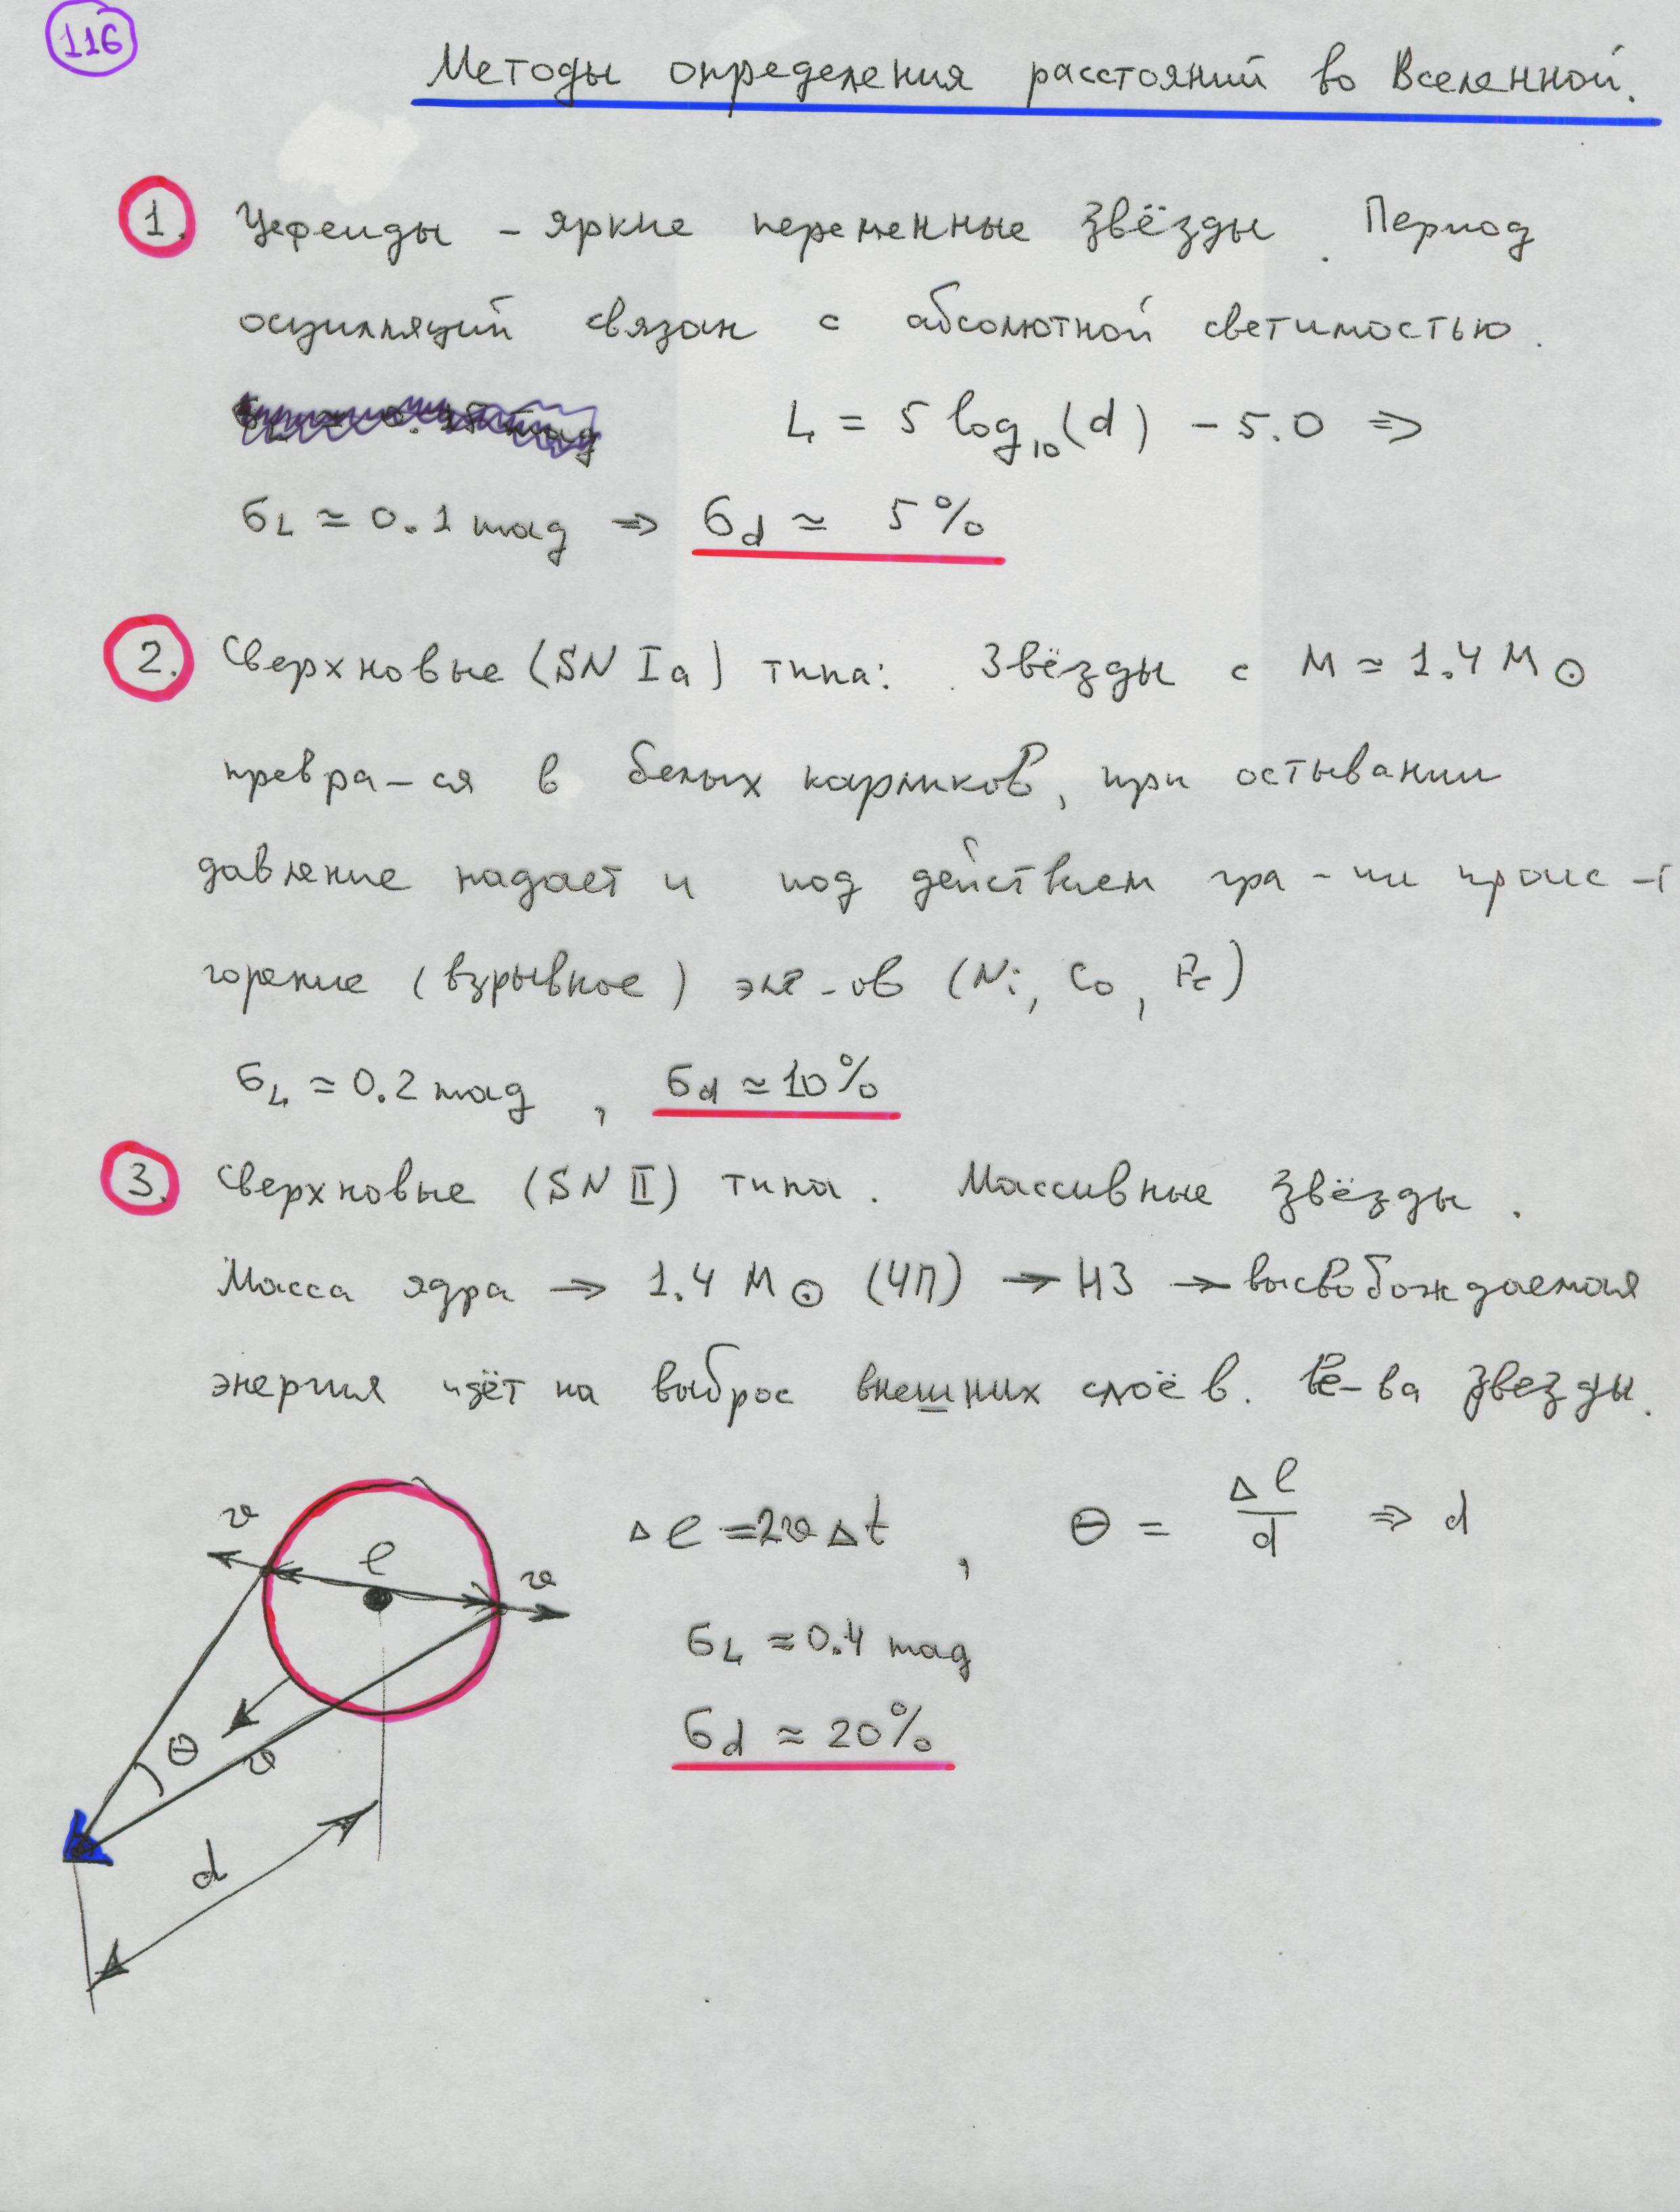 116
Методы определения расстояний во Вселенной.
1. Цефеиды – яркие переменные звёзды. Период
осцилляций связан с абсолютной светимостью.
L = 5 log₁₀(d) – 5.0 ⇒
σ_L ≈ 0.1 mag ⇒ σ_d ≈ 5%
2. Сверхновые (SN Ia) типа: Звёзды с M ≈ 1.4 M⊙
превра-ся в белых карликов, при остывании
давление падает и под действием гра-ии проис-т
горение (взрывное) эле-ов (Ni, Co, Fe)
σ_L ≈ 0.2 mag, σ_d ≈ 10%
3. Сверхновые (SN II) типа. Массивные звёзды.
Масса ядра → 1.4 M⊙ (ЧП) → НЗ → высвобождаемая
энергия идёт на выброс внешних слоёв. в-ва звезды.
Δl = 2vΔt, θ = Δl/d ⇒ d
σ_L ≈ 0.4 mag
σ_d ≈ 20%
v
l
v
θ
v
d